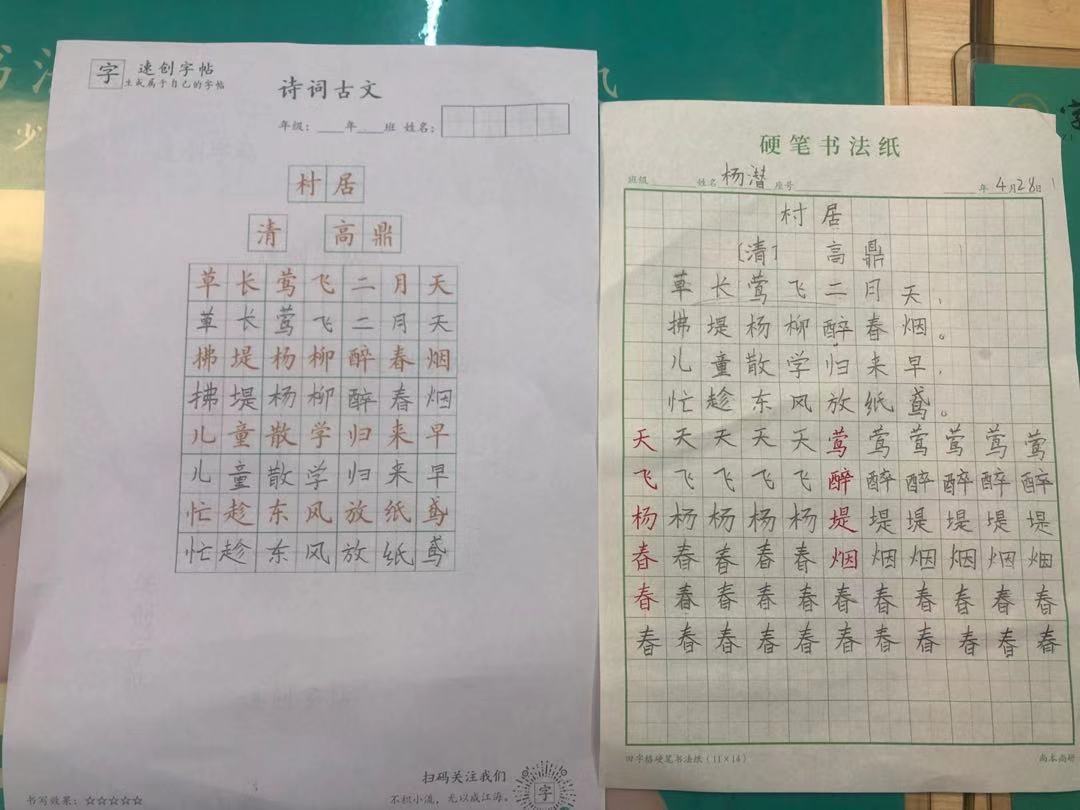 字 速创字帖
生成属于自己的字帖
诗词古文
年级：____年____班 姓名：
村居
清 高鼎
草长莺飞二月天
草长莺飞二月天
拂堤杨柳醉春烟
拂堤杨柳醉春烟
儿童散学归来早
儿童散学归来早
忙趁东风放纸鸢
忙趁东风放纸鸢
书写效果：☆☆☆☆☆
扫码关注我们
不积小流，无以成江海。
字
硬笔书法纸
班级 姓名 杨潜 座号 年 4月28日
村居
〔清〕 高鼎
草长莺飞二月天，
拂堤杨柳醉春烟。
儿童散学归来早，
忙趁东风放纸鸢。
天天天天天莺莺莺莺莺莺
飞飞飞飞飞醉醉醉醉醉醉
杨杨杨杨杨堤堤堤堤堤堤
春春春春春烟烟烟烟烟烟
春春春春春春春春春春春
春春春春春春春春春春春
田字格硬笔书法纸（11×14）
尚本尚研